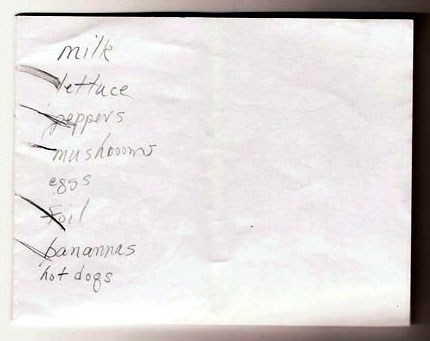 milk
lettuce
peppers
mushooms
eggs
foil
banannas
hot dogs